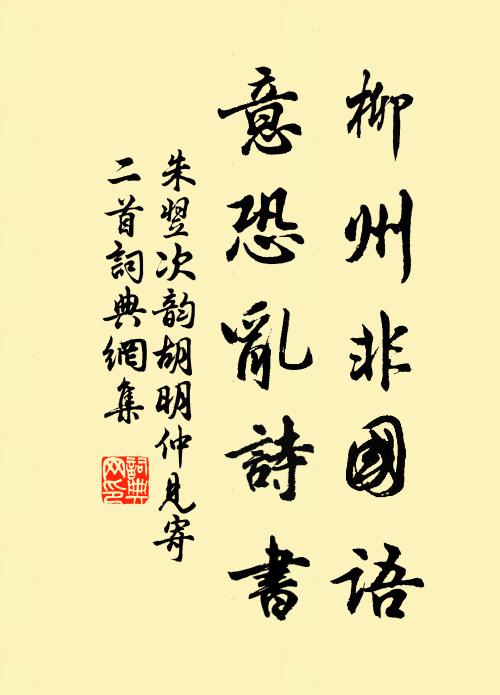 柳州非國語
意恐亂詩書
朱翌次韵胡明仲見寄
二首詞典網集
詞典
网印